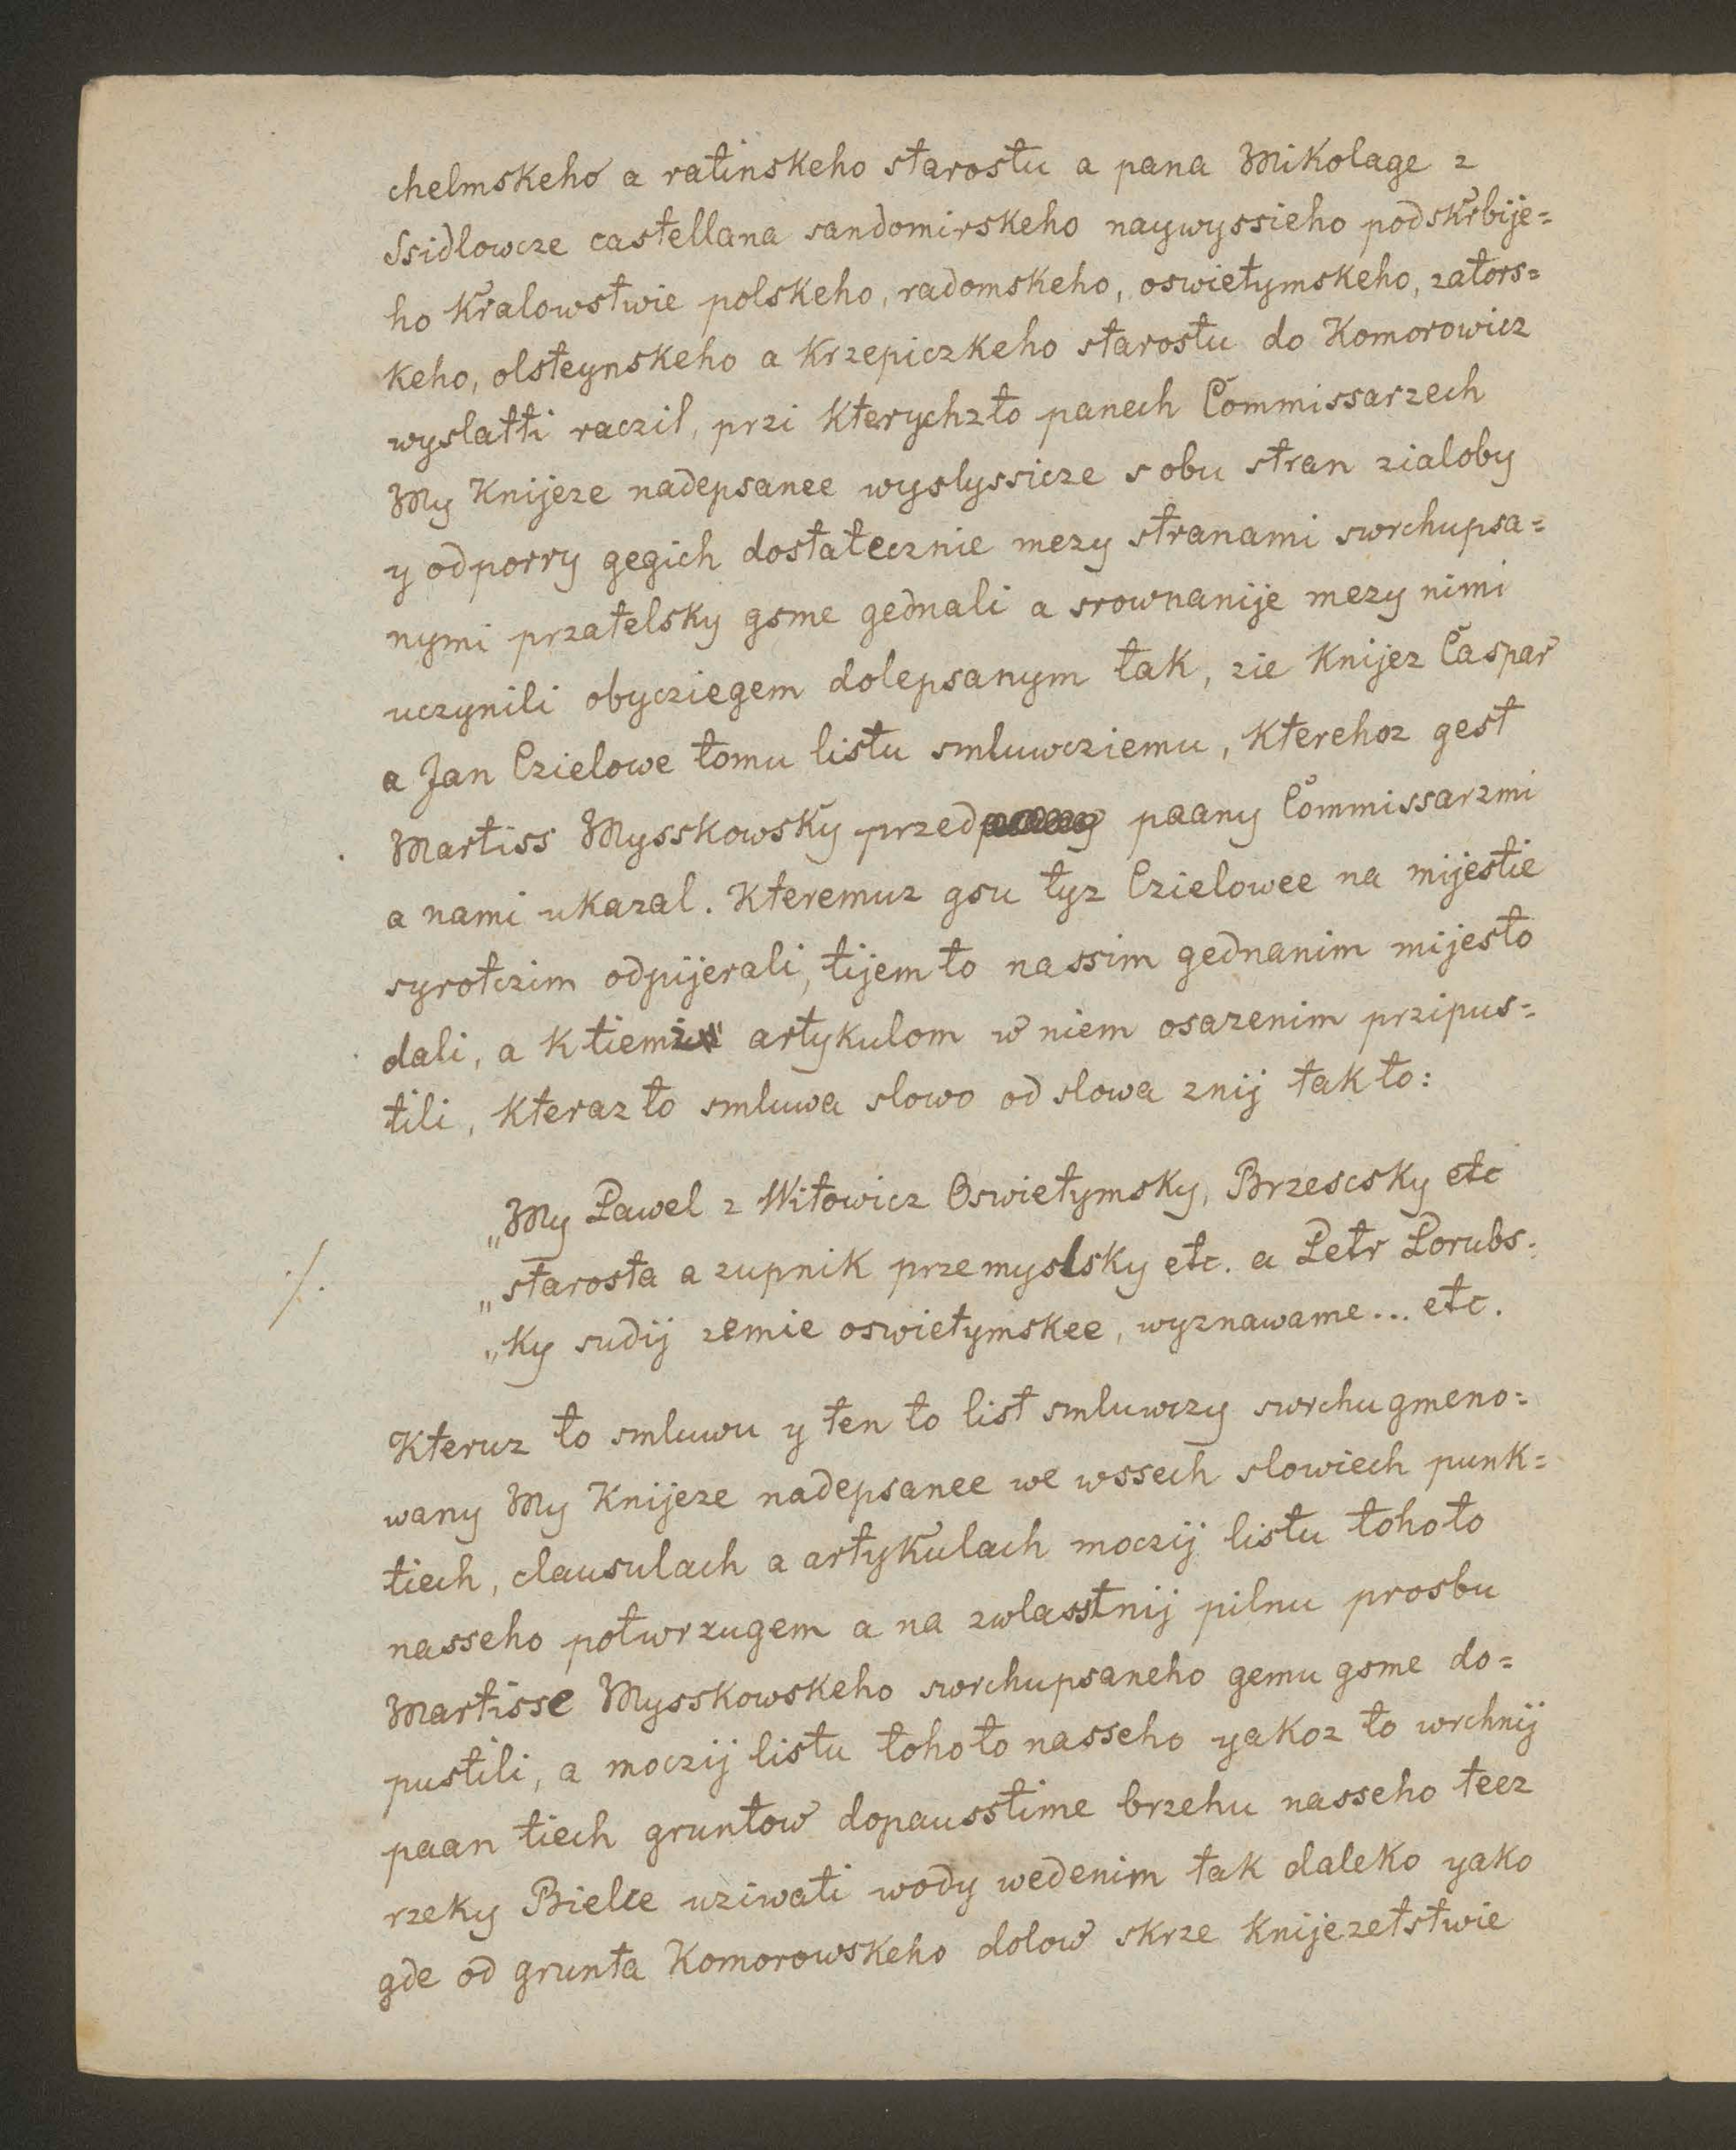 chelmskeho a ratinskeho starostu a pana Mikolage z
Ssidlowcze castellana sandomirskeho naywyssieho podskrbije=
ho Kralowstwie polskeho, radomskeho, oswietymskeho, zators=
keho, olsteynskeho a Krzepiczkeho starostu do Komorowicz
wyslatti raczil, przi kterychzto panech Commissarzech
My Knijeze nadepsanee wyslyssicze s obu stran zialoby
y odporry gegich dostatecznie mezy stranami swrchupsa=
nymi przatelsky gsme gednali a srownanije mezy nimi
uczynili obycziegem dolepsanym tak, zie Knijez Caspar
a Jan Czielowe tomu listu smluwcziemu, kterehoz gest
Martiss Mysskowsky przed paany Commissarzmi
a nami ukazal. Kteremuz gsu tyz Czielowee na mijestie
syrotczim odpijerali, tijem to nassim gednanim mijesto
dali, a k tiem artykulom w niem osazenim przipus=
tili, kteraz to smluwa slowo od slowa znij tak to:
„My Pawel z Witowicz Oswietymsky, Brzescsky etc
„starosta a zupnik przemyslsky etc. a Petr Porubs.
„ky sudij zemie oswietymskee, wyznawame... etc.
./.
Kteruz to smluwu y ten to list smluwczy swrchu gmeno=
wany My Knijeze nadepsanee we wssech slowiech punk=
tiech, clausulach a artykulach moczij listu tohoto
nasseho potwrzugem a na zwlasstnij pilnu prosbu
Martisse Mysskowskeho swrchupsaneho gemu gsme do=
pustili, a moczij listu tohoto nasseho yakoz to wrchnij
paan tiech gruntow dopausstime brzehu nasseho teez
rzeky Bielce uziwati wody wedenim tak daleko yako
gde od grunta Komorowskeho dolow skrze Knijezetstwie